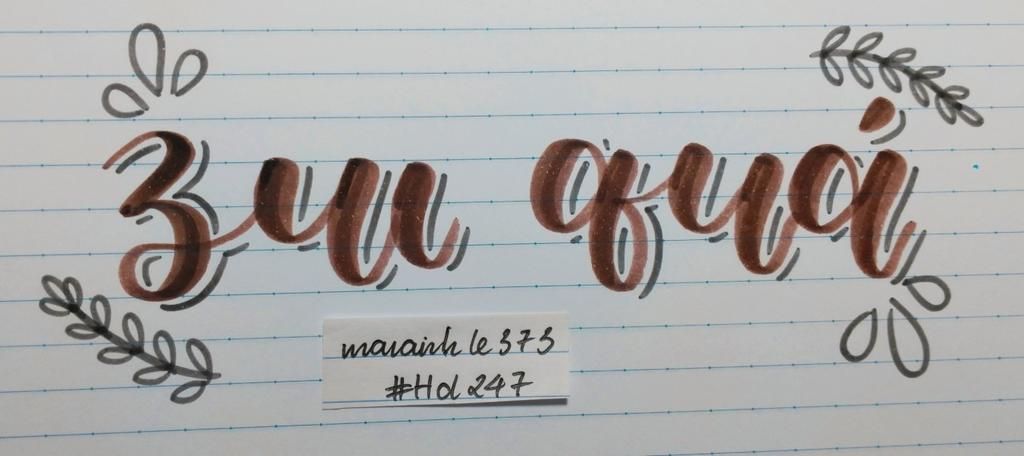 Zui quá
maianh le 373
#Hd 247